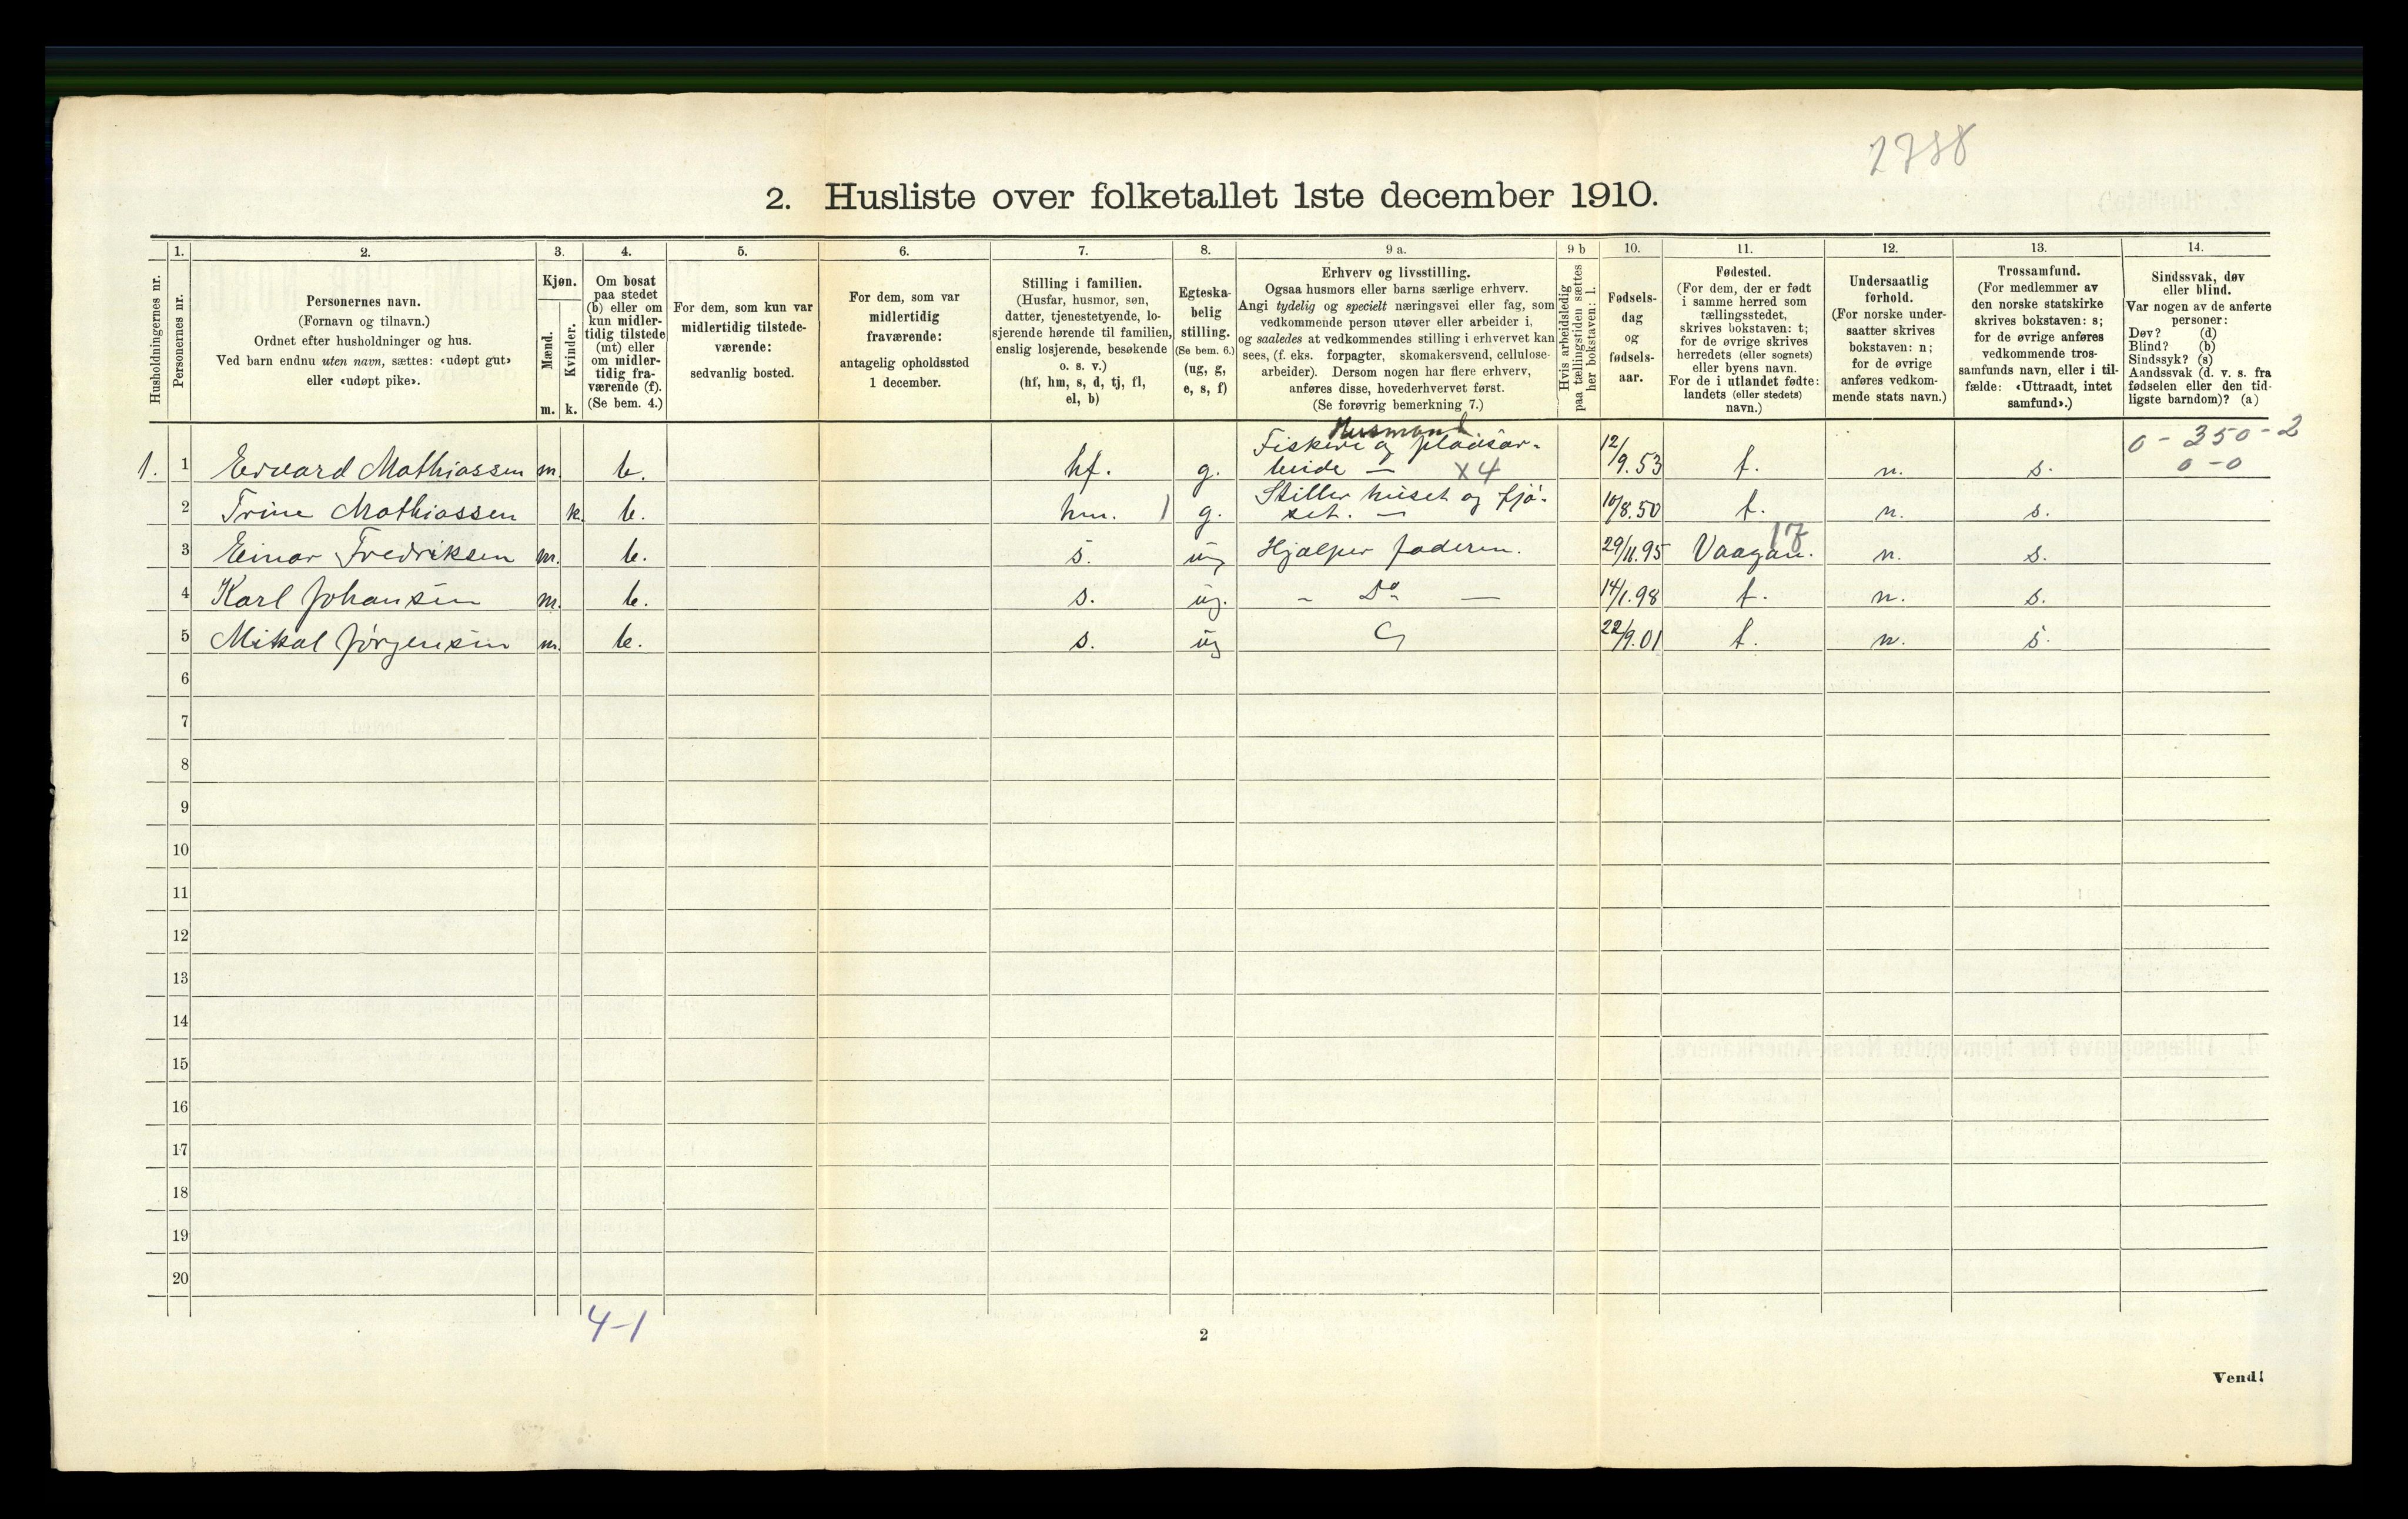 2788
2. Husliste over folketallet 1ste december 1910.
Husholdningernes nr.
1.
Personernes nr.
2.
Personernes navn.
(Fornavn og tilnavn.)
Ordnet efter husholdninger og hus.
Ved barn endnu uten navn, sættes: «udøpt gut»
eller «udøpt pike».
3.
Kjøn.
Mænd.
Kvinder.
m. k.
4.
Om bosat
paa stedet
(b) eller om
kun midler-
tidig tilstede
(mt) eller
om midler-
tidig fra-
værende (f).
(Se bem. 4.)
5.
For dem, som kun var
midlertidig tilstede-
værende:
sedvanlig bosted.
6.
For dem, som var
midlertidig
fraværende:
antagelig opholdssted
1 december.
7.
Stilling i familien.
(Husfar, husmor, søn,
datter, tjenestetyende, lo-
sjerende hørende til familien,
enslig losjerende, besøkende
o. s. v.)
(hf, hm, s, d, tj, fl,
el, b)
8.
Egteska-
belig
stilling.
(Se bem. 6.)
(ug, g,
e, s, f)
9 a.
Erhverv og livsstilling.
Ogsaa husmors eller barns særlige erhverv.
Angi tydelig og specielt næringsvei eller fag, som
vedkommende person utøver eller arbeider i,
og saaledes at vedkommendes stilling i erhvervet kan
sees, (f. eks. forpagter, skomakersvend, cellulose-
arbeider). Dersom nogen har flere erhverv,
anføres disse, hovederhvervet først.
(Se forøvrig bemerkning 7.)
9 b
Hvis arbeidsledig
paa tællingstiden sættes
her bokstaven: l.
10.
Fødsels-
dag
og
fødsels-
aar.
11.
Fødested.
(For dem, der er født
i samme herred som
tællingsstedet,
skrives bokstaven: t;
for de øvrige skrives
herredets (eller sognets)
eller byens navn.
For de i utlandet fødte:
landets (eller stedets)
navn.)
12.
Undersaatlig
forhold.
(For norske under-
saatter skrives
bokstaven: n;
for de øvrige
anføres vedkom-
mende stats navn.)
13.
Trossamfund.
(For medlemmer av
den norske statskirke
skrives bokstaven: s;
for de øvrige anføres
vedkommende tros-
samfunds navn, eller i til-
fælde: «Uttraadt, intet
samfund».)
14.
Sindssvak, døv
eller blind.
Var nogen av de anførte
personer:
Døv? (d)
Blind? (b)
Sindssyk? (s)
Aandssvak (d. v. s. fra
fødselen eller den tid-
ligste barndom)? (a)
Husmand
0 - 350 - 2
0 - 0
1. 1 Edvard Mathiassen m. b. hf. g. Fiskeri og pladsar-
beide — x4 12/9.53 t. n. s.
2 Trine Mathiassen k. b. hm. 1 g. Steller huset og fjø-
set. — 10/8.50 t. n. s.
17
3 Einar Fredriksen m. b. s. ug Hjælper faderen. 29/11.95 Vaagan. n. s.
4 Karl Johansen m. b. s. ug. - Do — 14/1.98 t. n. s.
5 Mikal Jørgensen m. b. s. ug 22/9.01 t. n. s.
6
7
8
9
10
11
12
13
14
15
16
17
18
19
20
4-1
2
Vend!